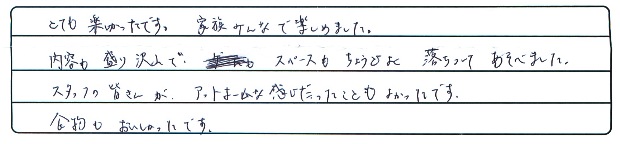 とても楽しかったです。 家族みんなで楽しめました。
内容も盛り沢山で、スペースもちょうどよく 落ちついてあそべました。
スタッフの皆さんが、アットホームな感じだったこともよかったです。
食物も おいしかったです。